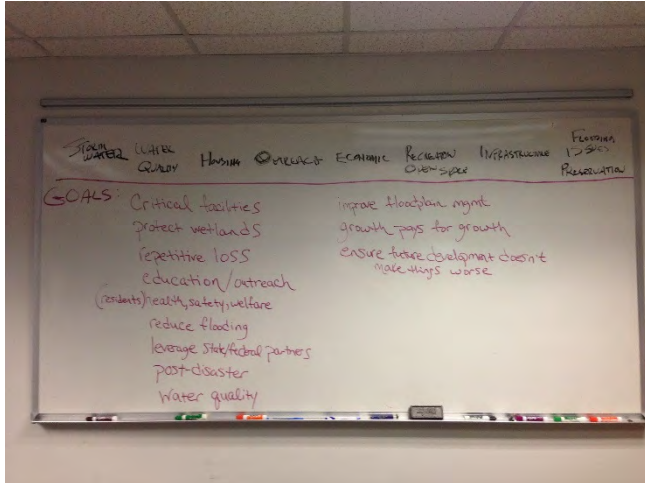 STORM WATER
WATER QUALITY
HOUSING
OUTREACH
ECONOMIC
RECREATION OPEN SPACE
INFRASTRUCTURE
FLOODING
PRESERVATION
GOALS:
Critical facilties
protect wetlands
repetitive loss
education/outreach
(residents) health, safety, welfare
reduce flooding
leverage State/federal partners
post-disaster
Water quality
improve floodplain mgmt
growth pays for growth
ensure future development doesn't
make things worse